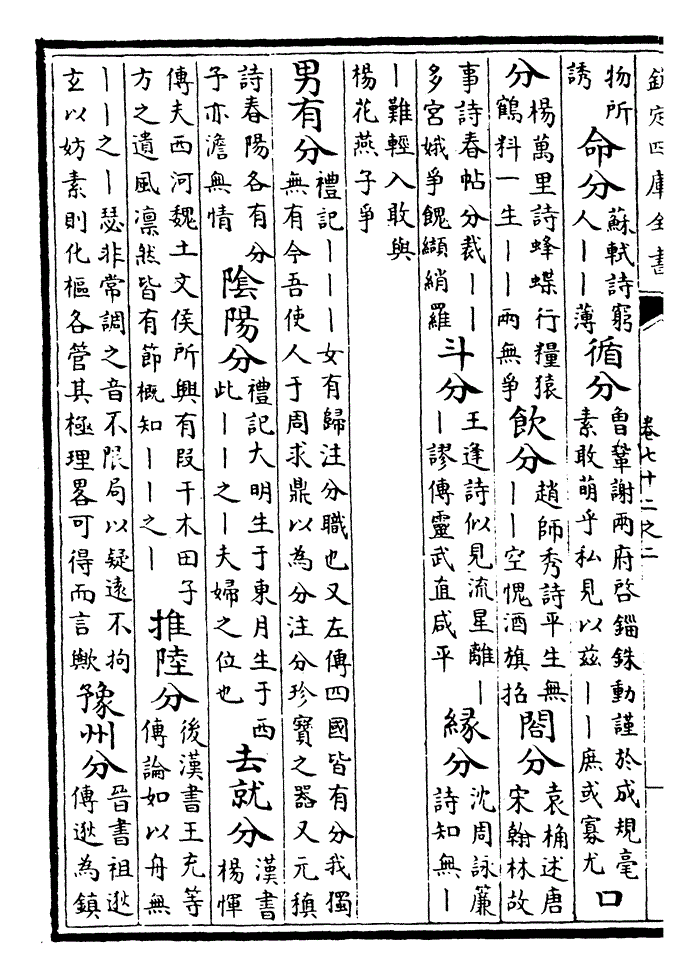 欽定四庫全書 卷七十二之二
物所誘 命分 蘇軾詩窮人丨丨薄 循分 曾鞏謝兩府啓錙銖動謹於成規毫素敢萌乎私見以兹丨丨庶或寡尤 口
分 楊萬里詩蜂蝶行糧猿鶴料一生丨丨兩無爭 飲分 趙師秀詩平生無丨丨空愧酒旗招 閤分 袁桷述唐宋翰林故
事詩春帖分裁丨丨多宮娥爭餽纈綃羅 斗分 王逢詩似見流星離丨丨謬傳靈武直咸平 緣分 沈周詠簾詩知無丨
丨難輕入敢與楊花燕子爭
男有分 禮記丨丨丨女有歸注分職也又左傳四國皆有分我獨無有今吾使人于周求鼎以為分注分珍寶之器又元稹
詩春陽各有分予亦澹無情 隂陽分 禮記大明生于東月生于西此丨丨之丨夫婦之位也 去就分 漢書楊惲
傳夫西河魏土文侯所興有段干木田子方之遺風凛然皆有節概知丨丨之丨 推陸分 後漢書王充等傳論如以舟無
丨丨之丨瑟非常調之音不限局以疑遠不拘玄以妨素則化樞各管其極理畧可得而言歟 豫州分 晉書祖逖傳逖為鎮